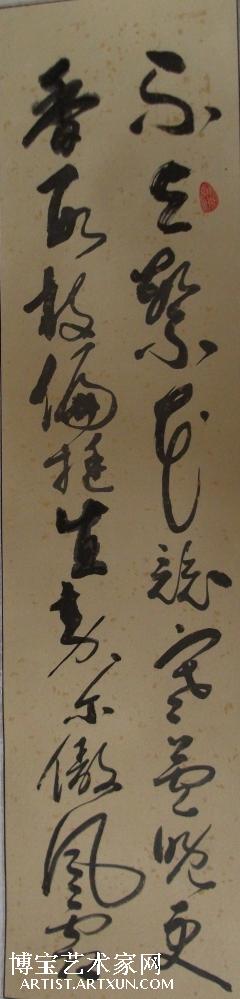 不与繁花竞寒晚更
香取枝偏挺直尔傲风霜
博宝艺术家网
ARTIST.ARTXUN.COM